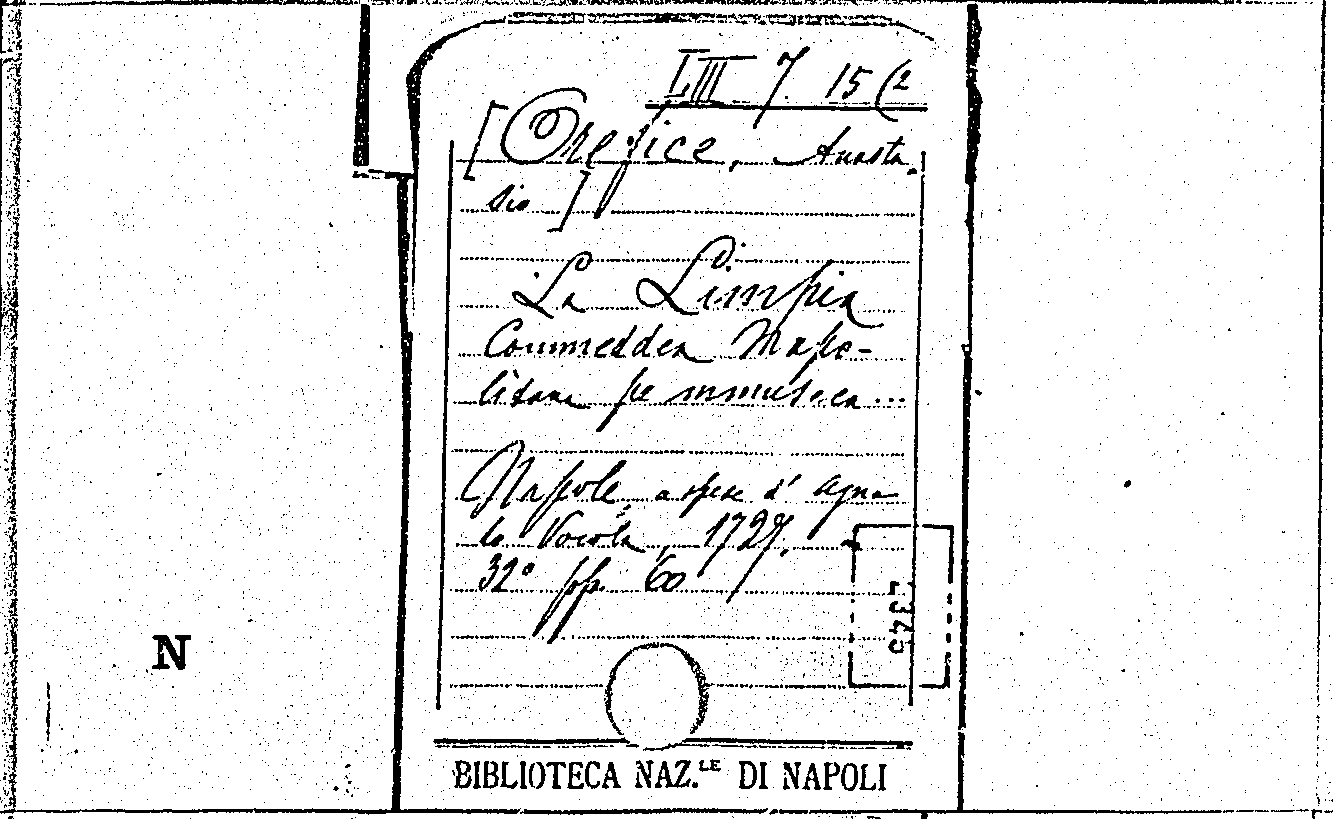 LIII 7. 15 (2
[Orefice, Anasta-
sio]
La Limpia
Commeddea Napo-
litana pe mmuseca...
Napole, a spese d' Agna
lo Vocola, 1727.
32° pp. 60
N
BIBLIOTECA NAZ.LE DI NAPOLI